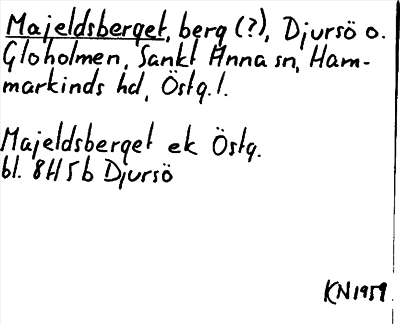 Majeldsberget, berg (?), Djursö o.
Gloholmen, Sankt Anna sn, Ham-
markinds hd, Östg. l.
Majeldsberget ek Östg.
bl. 8H5b Djursö
KN1959